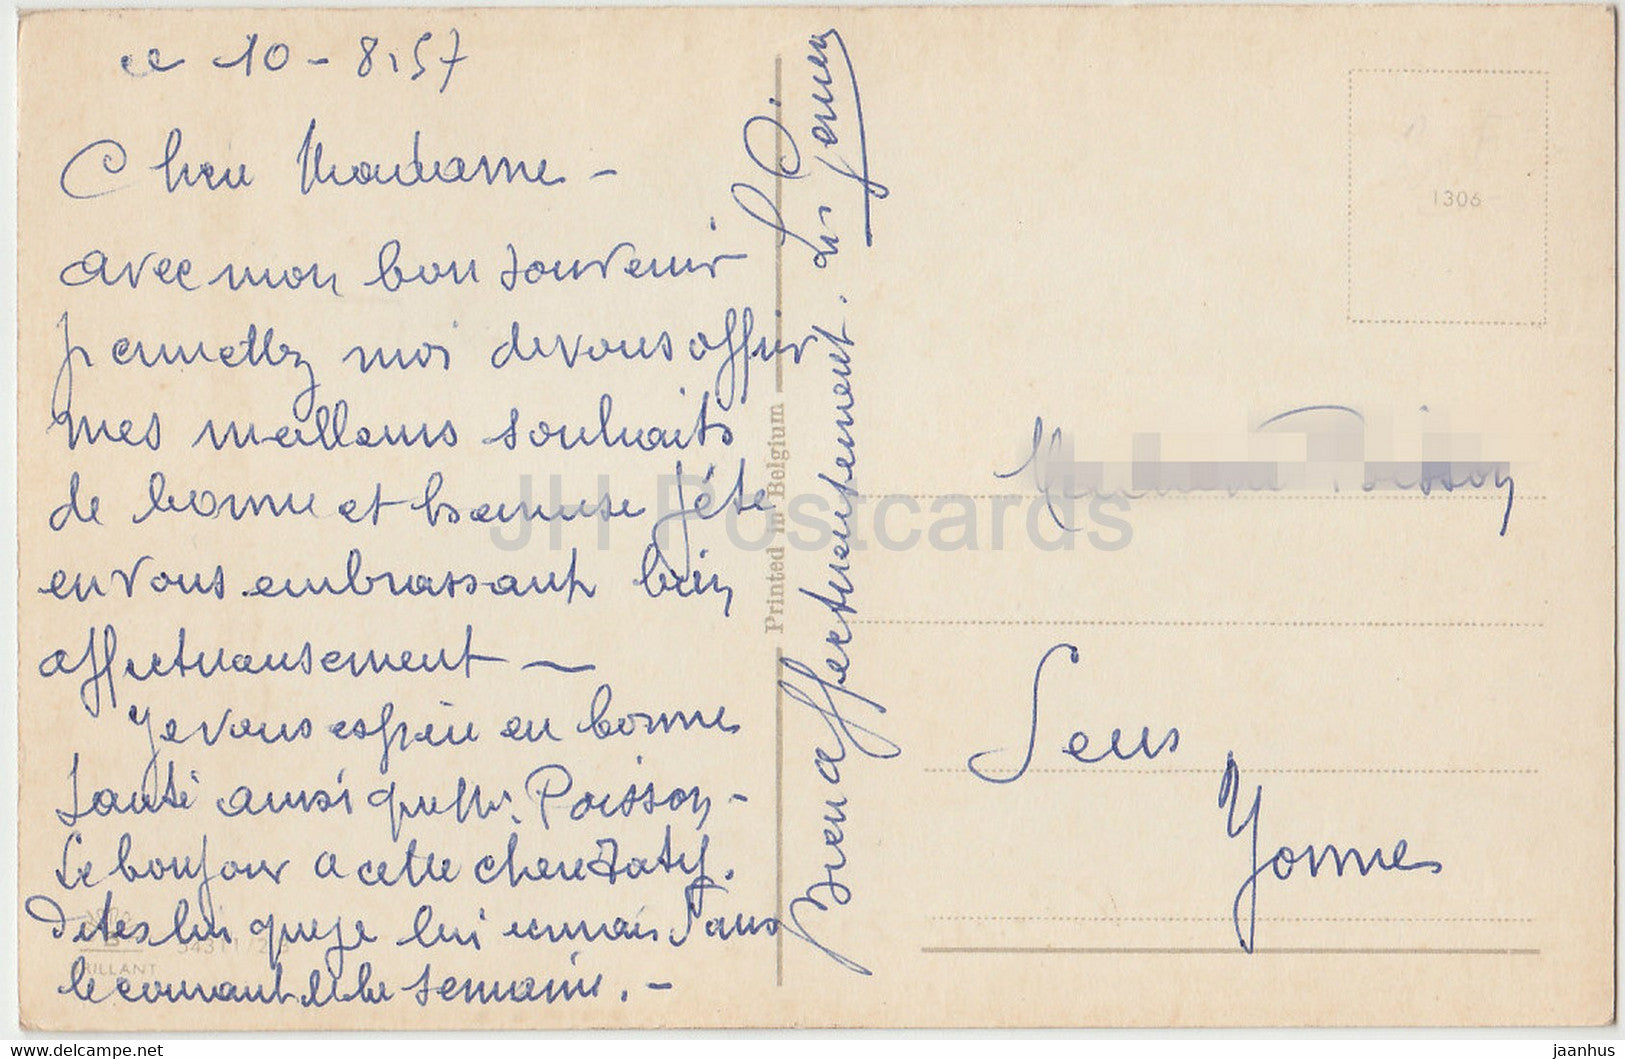 ce 10-8-57
Chère Madame -
avec mon bon souvenir
permettez moi de vous offrir
mes meilleurs souhaits
de bonne et heureuse fête
en vous embrassant bien
affectueusement —
Je vous espère en bonne
santé ainsi que Mr. Poisson -
Le bonjour a cette chère
Dites lui que je lui écrirais dans
le courant de la semaine. -
Bien affectueusement.
Printed in Belgium
1306
Poisson
Sens
Yonne
BRILLANT
JH Postcards
www.delcampe.net
jaanhus